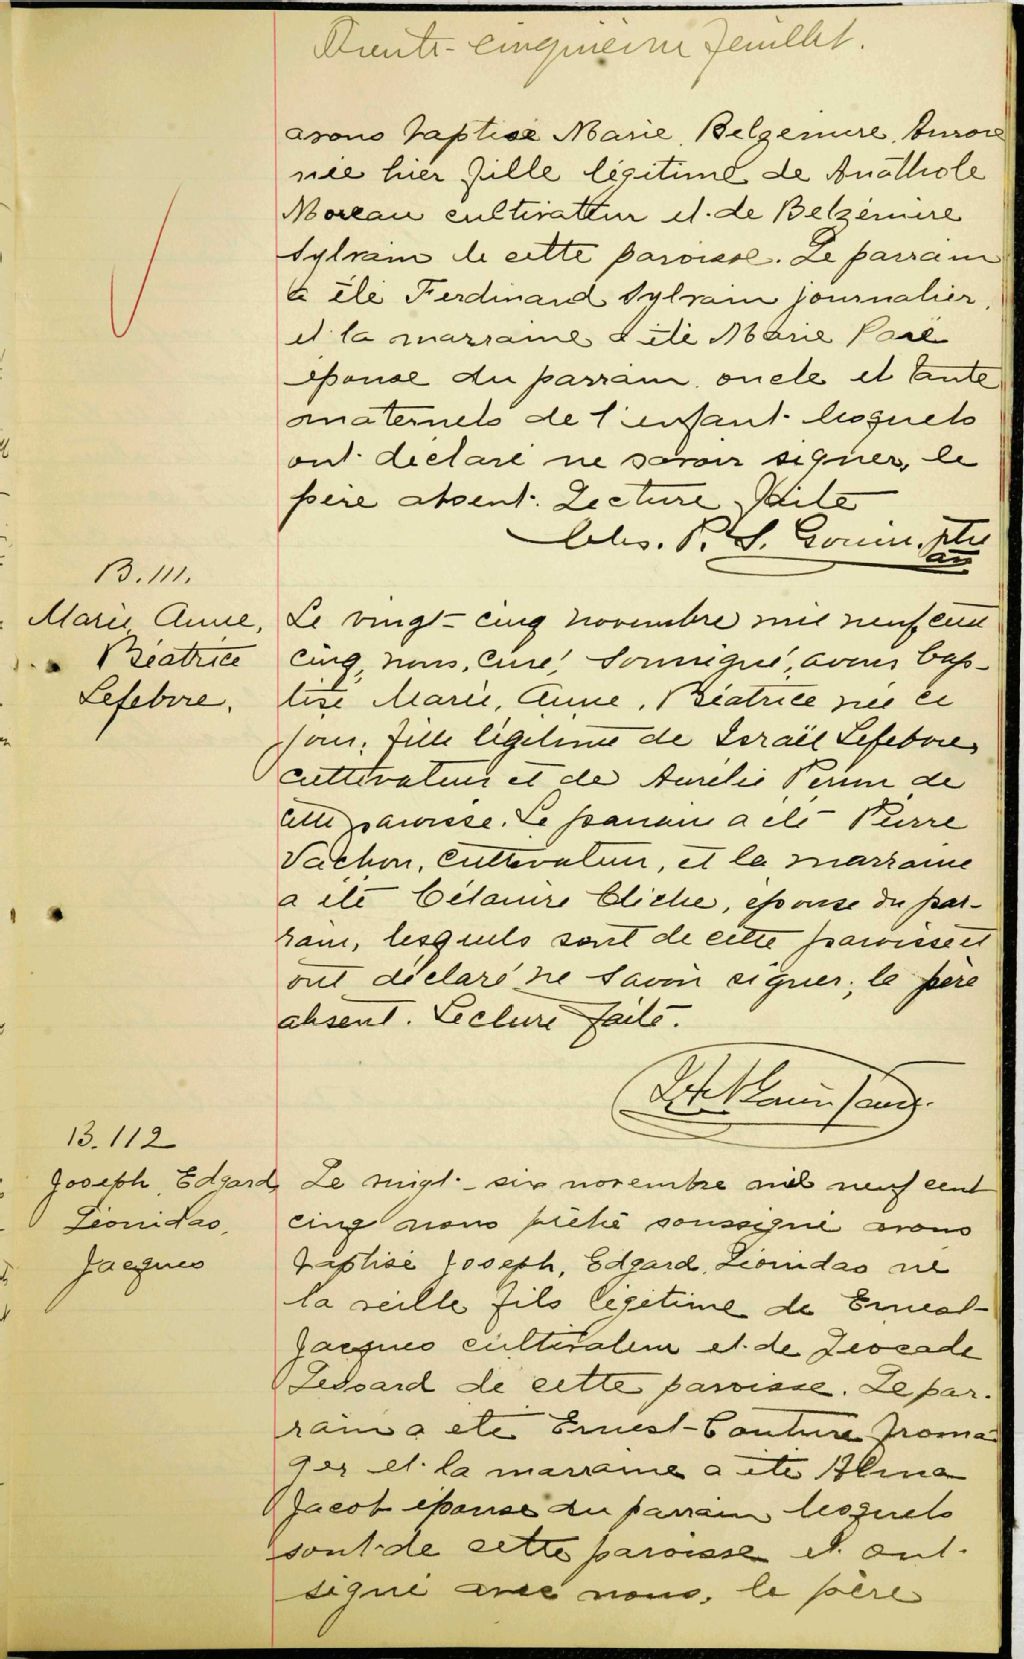 Trente-cinquième feuillet.
avons baptisé Marie, Belzemire, Aurore
née hier fille légitime de Anathole
Moreau cultivateur et de Belzémire
Sylvain de cette paroisse. Le parrain
a été Ferdinand Sylvain journalier,
et la marraine a été Marie Paré
épouse du parrain, oncle et tante
maternels de l'enfant lesquels
ont déclaré ne savoir signer, le
père absent. Lecture faite
Chs. P. S. Gouin, ptre
B.111.
Marie, Anne,
Béatrice
Lefebvre,
Le vingt-cinq novembre mil neuf cent
cinq, nous, curé, soussigné, avons bap-
tisé Marie, Anne, Béatrice née ce
jour, fille légitime de Israël Lefebvre,
cultivateur et de Aurélie Perron de
cette paroisse. Le parrain a été Pierre
Vachon, cultivateur, et la marraine
a été Célanire Cliche, épouse du par-
rain, lesquels sont de cette paroisse et
ont déclaré ne savoir signer; le père
absent. Lecture faite.
Gouin
B.112
Joseph, Edgard,
Léonidas,
Jacques
Le vingt-six novembre mil neuf cent
cinq nous prêtre soussigné avons
baptisé Joseph, Edgard, Léonidas né
la veille fils légitime de Ernest
Jacques cultivateur et de Léocade
Lessard de cette paroisse. Le par-
rain a été Ernest Couture froma-
ger et la marraine a été Alma
Jacob épouse du parrain lesquels
sont de cette paroisse et ont
signé avec nous, le père